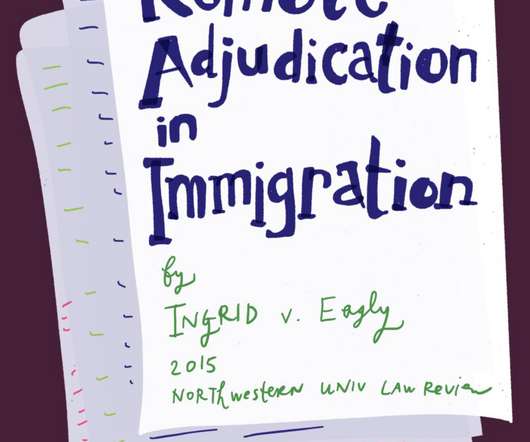 Remote
Adjudication
in
Immigration
by
INGRID V. Eagly
2015
NORthwesteRN UNIV LAW Review